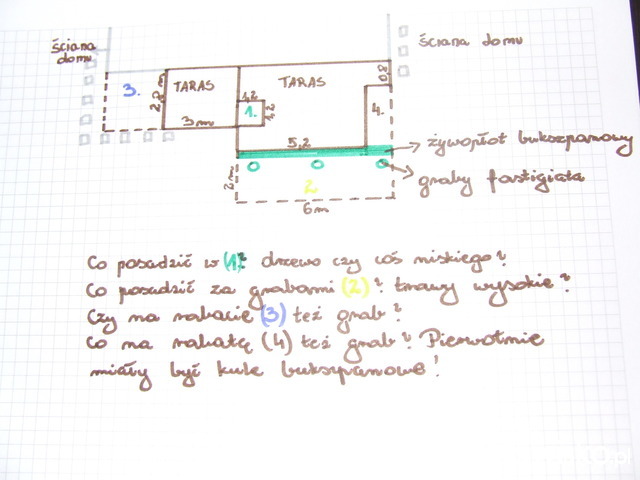 ściana domu
ściana domu
3.
2,8 m
TARAS
TARAS
0,8
1,2
1.
1,2
4.
3m
5,2
żywopłot bukszpanowy
2m
2
graby fastigiata
6m
Co posadzić w (1)? drzewo czy coś niskiego?
Co posadzić za grabami (2)? trawy wysokie?
Czy na rabacie (3) też grab?
Co na rabatę (4) też grab? Pierwotnie
miały być kule bukszpanowe!